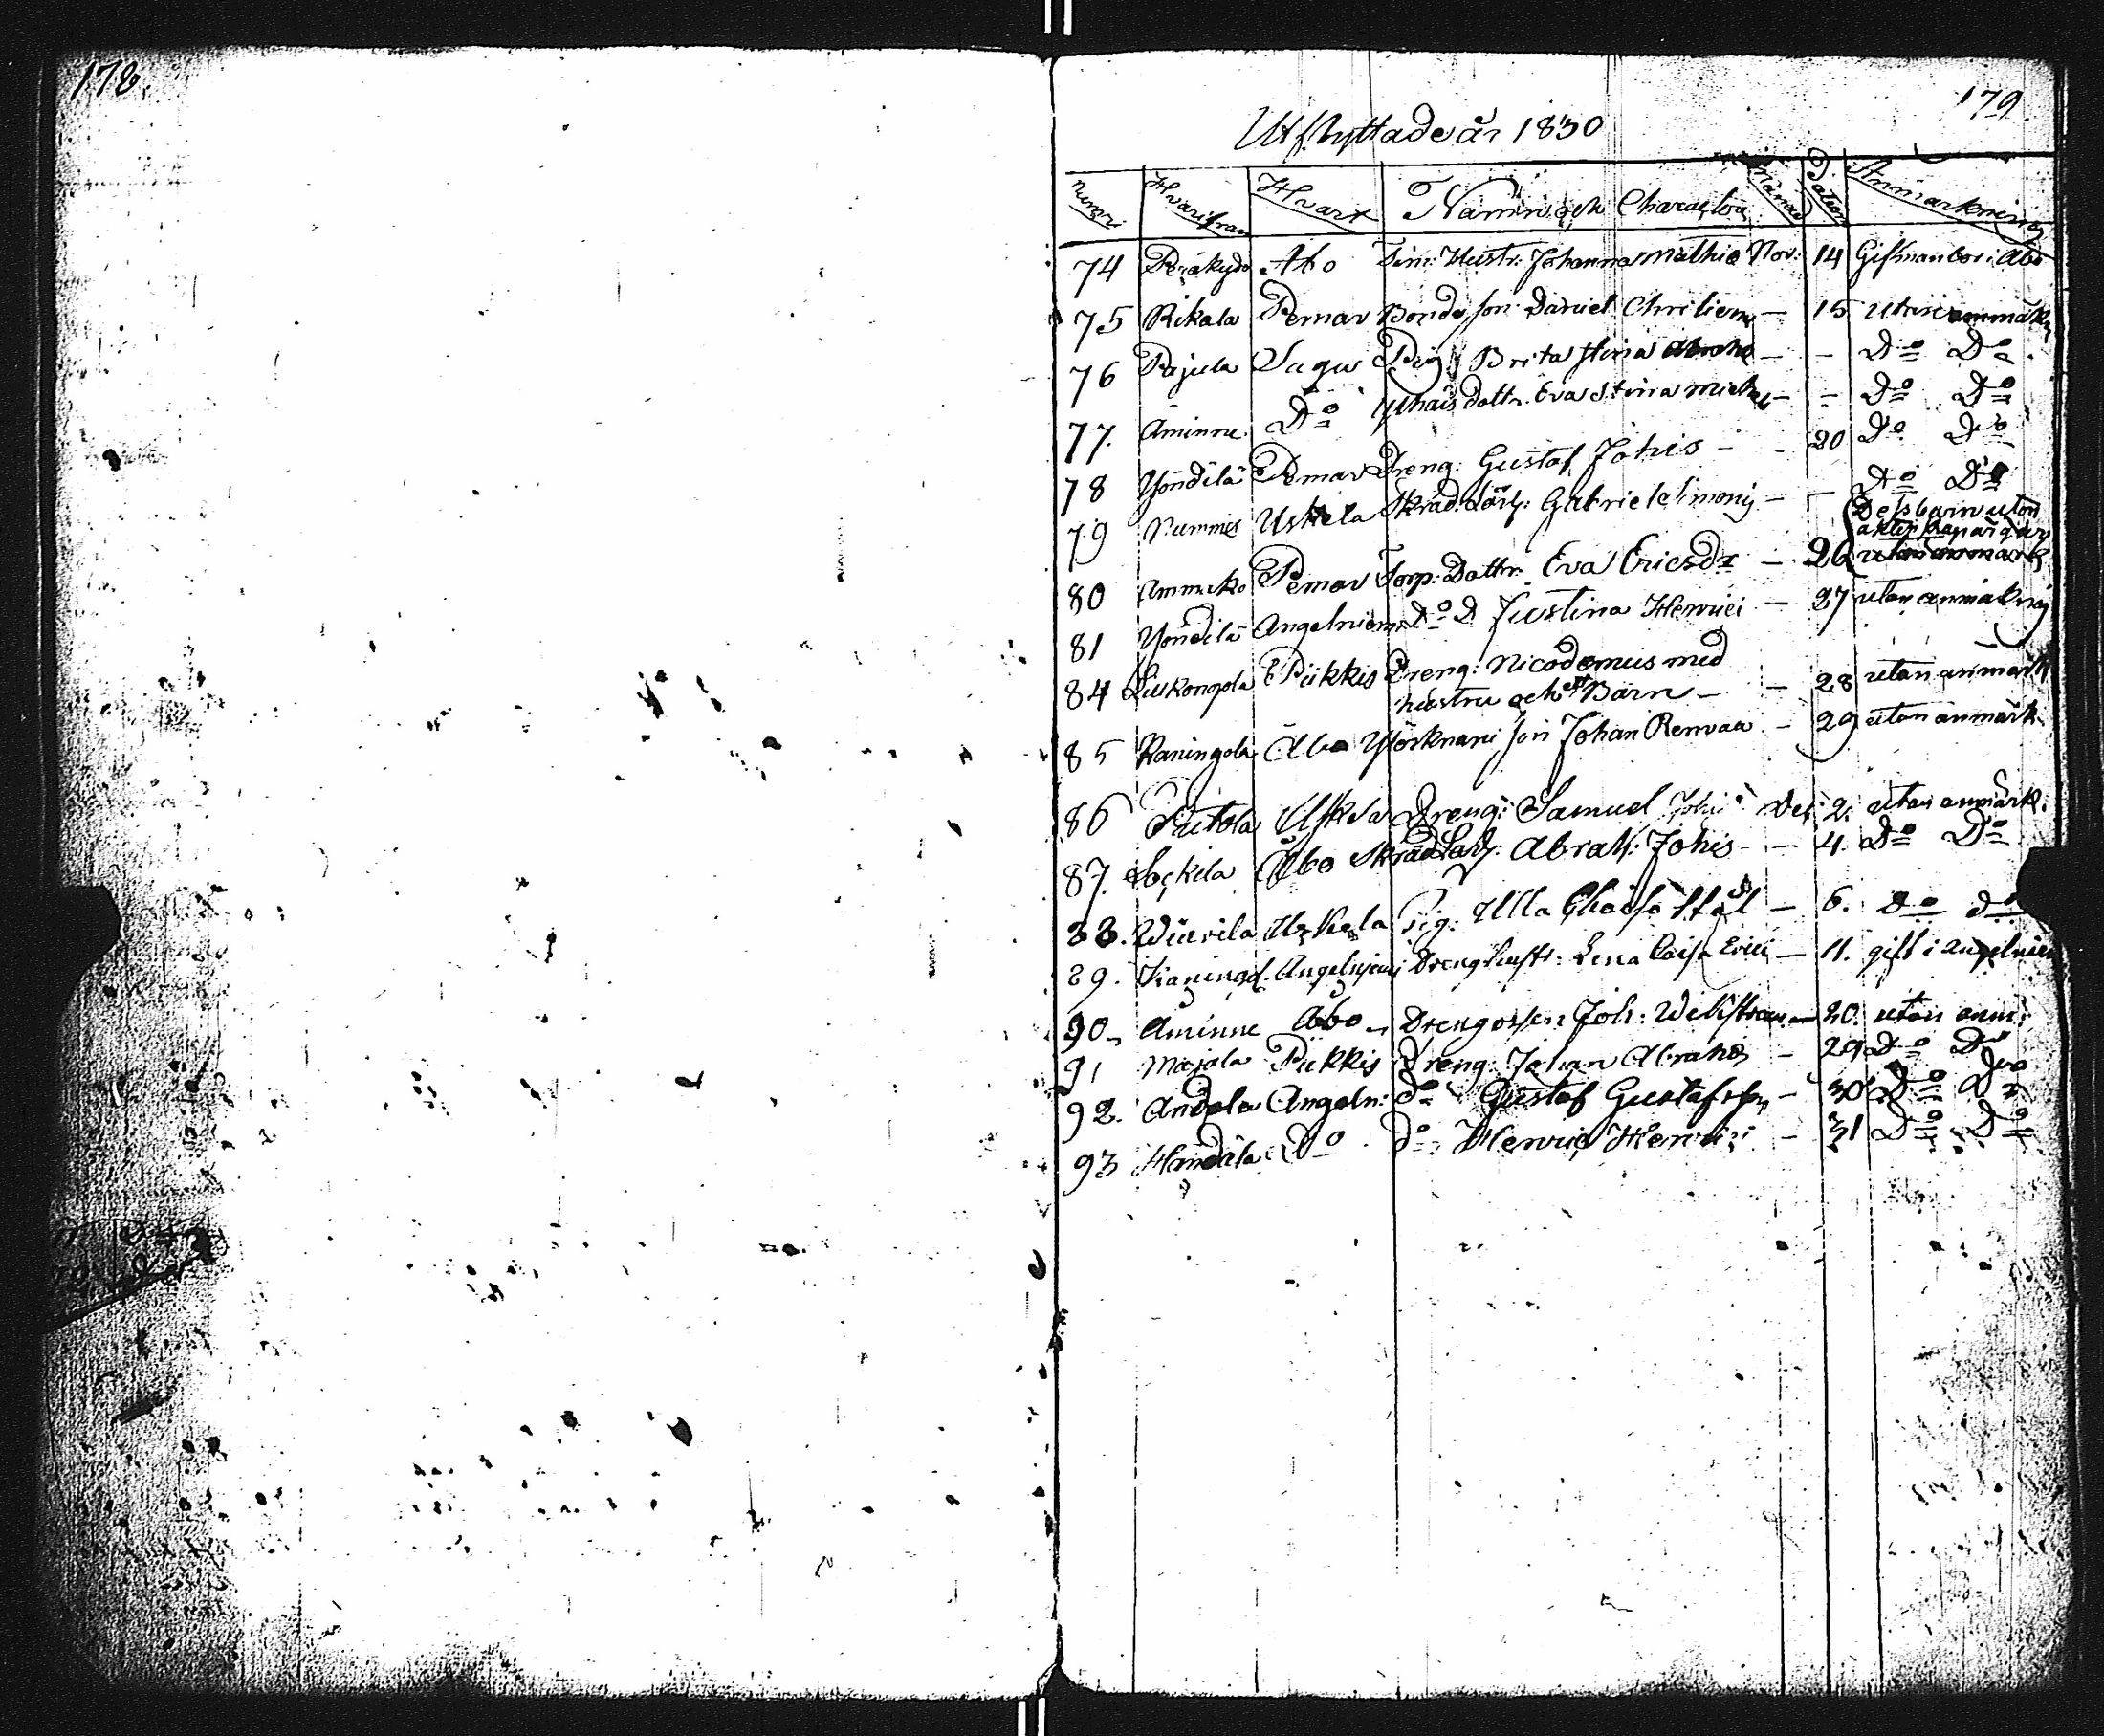 178.
179
Utflyttade år 1830
Numri Hvarifrån Hvart Namn och Character Månad Datum Anmärkning
74 Peräkylä Abo Tim: Hustr: Johanna Mathiæ Nov: 14 Giftman bor i Åbo
75 Rikala Pemar Bonde son Daniel Chri — 15 utan anmärk
76 Pajula Sagu Pig: Brita Stina Abrahs — – Do Do
77. Åminne Do dottr. Eva Stina Mich — – Do Do
78 Yöndilä Pemar Dreng: Gustaf Johis — 20 Do Do
79 Nummis Uskela Skräd. Lärl: Gabriel Simonis — – Do Do
Dess barn utan
80 Pemar Torp: Dottr. Eva Ericsdr — 26 utan anmärk
81 Yöndilä Angelniemi Do D Justina Henrici — 27 utan anmärkning
84 Liukongola Pikkis Dreng: Nicodemus med
hustru och ett Barn — — 28 utan anmärk
85 Kaningola Åbo son Johan Renvaa — 29 utan anmärk.
86 Uskela Dreng: Samuel Johis Dec: 2. utan anmärk:
87. Åbo Skräd Lärl: Abrah: Johis — 4. Do Do
88. Wiurila Uskela Pig: Ulla Ståhl — 6. Do do
89. Kaningol. Angelnjemi Dreng hustr: Lena Caisa Erici — 11. gift i angelniem
90. Åminne Åbo Joh: — 20. utan anm:
91 Majala Pikkis Dreng: Johan Abrahs — 29. Do Do
92. Andola Angeln: do Gustaf Gustafsson — 30 Do Do
93 Handåla Do do Henric Henrici — 31 Do Do